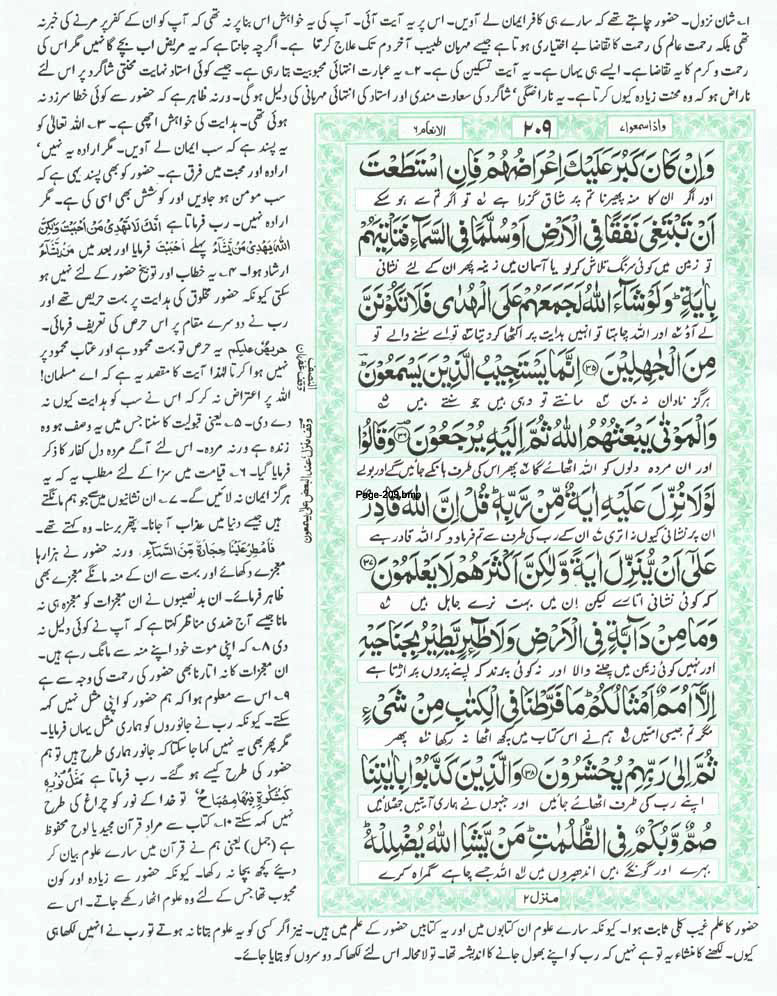 ۱؎ شان نزول۔ حضور چاہتے تھے کہ سارے ہی کافر ایمان لے آویں۔ اس پر یہ آیت آئی۔ آپ کی یہ خواہش اس بنا پر نہ تھی کہ آپ کو ان کے کفر پر مرنے کی خبر نہ
تھی بلکہ رحمت عالم کی رحمت کا تقاضا بے اختیاری ہوتا ہے جیسے مہربان طبیب آخر دم تک علاج کرتا ہے۔ اگرچہ جانتا ہے کہ یہ مریض اب بچے گا نہیں مگر اس کی
رحمت و کرم کا یہ تقاضا ہے۔ ایسے ہی یہاں ہے۔ یہ آیت تسکین کی ہے۔ ۲؎ یہ عبارت انتہائی محبوبیت بتا رہی ہے۔ جیسے کوئی استاد نہایت محنتی شاگرد پر اس لئے
ناراض ہو کہ وہ محنت زیادہ کیوں کرتا ہے۔ یہ ناراضگی، شاگرد کی سعادت مندی اور استاد کی انتہائی مہربانی کی دلیل ہو گی۔ ورنہ ظاہر ہے کہ حضور سے کوئی خطا سرزد نہ
واذا سمعوا ۷
۲۰۹
الانعام ۶
وَاِنْ كَانَ كَبُرَ عَلَيْكَ اِعْرَاضُهُمْ فَاِنِ اسْتَطَعْتَ
اور اگر ان کا منہ پھیرنا تم پر شاق گزرا ہے تو اگر تم سے ہو سکے
اَنْ تَبْتَغِىَ نَفَقًا فِى الْاَرْضِ اَوْ سُلَّمًا فِى السَّمَآءِ فَتَاْتِيَهُمْ
تو زمین میں کوئی سرنگ تلاش کر لو یا آسمان میں زینہ پھر ان کے لئے نشانی
بِاٰيَةٍ ؕ وَلَوْ شَآءَ اللّٰهُ لَجَمَعَهُمْ عَلَى الْهُدٰى فَلَا تَكُوْنَنَّ
لے آؤ اور اللہ چاہتا تو انہیں ہدایت پر اکٹھا کر دیتا تو اے سننے والے تو
مِنَ الْجٰهِلِيْنَ ۝۳۵ اِنَّمَا يَسْتَجِيْبُ الَّذِيْنَ يَسْمَعُوْنَ
ہرگز نادان نہ بن مانتے تو وہی ہیں جو سنتے ہیں
وَالْمَوْتٰى يَبْعَثُهُمُ اللّٰهُ ثُمَّ اِلَيْهِ يُرْجَعُوْنَ ۝۳۶ وَقَالُوْا
اور ان مردہ دلوں کو اللہ اٹھائے گا پھر اس کی طرف ہانکے جائیں گے اور بولے
لَوْلَا نُزِّلَ عَلَيْهِ اٰيَةٌ مِّنْ رَّبِّهٖ ؕ قُلْ اِنَّ اللّٰهَ قَادِرٌ
Page-209.bmp
ان پر نشانی کیوں نہ اتری ان کے رب کی طرف سے تم فرما دو کہ اللہ قادر ہے
عَلٰٓى اَنْ يُّنَزِّلَ اٰيَةً وَّلٰكِنَّ اَكْثَرَهُمْ لَا يَعْلَمُوْنَ ۝۳۷
کہ کوئی نشانی اتارے لیکن ان میں بہت نرے جاہل ہیں
وَمَا مِنْ دَآبَّةٍ فِى الْاَرْضِ وَلَا طٰٓئِرٍ يَّطِيْرُ بِجَنَاحَيْهِ
اور نہیں کوئی زمین میں چلنے والا اور نہ کوئی پرند کہ اپنے پروں پر اڑتا ہے
اِلَّآ اُمَمٌ اَمْثَالُكُمْ ؕ مَا فَرَّطْنَا فِى الْكِتٰبِ مِنْ شَىْءٍ
مگر تم جیسی امتیں ہم نے اس کتاب میں کچھ اٹھا نہ رکھا پھر
ثُمَّ اِلٰى رَبِّهِمْ يُحْشَرُوْنَ ۝۳۸ وَالَّذِيْنَ كَذَّبُوْا بِاٰيٰتِنَا
اپنے رب کی طرف اٹھائے جائیں گے اور جنہوں نے ہماری آیتیں جھٹلائیں
صُمٌّ وَّبُكْمٌ فِى الظُّلُمٰتِ ؕ مَنْ يَّشَاِ اللّٰهُ يُضْلِلْهُ ؕ
بہرے اور گونگے ہیں اندھیروں میں اللہ جسے چاہے گمراہ کرے
منزل ۲
ہوئی تھی۔ ہدایت کی خواہش اچھی ہے۔ ۳؎ اللہ تعالیٰ کو
یہ پسند ہے کہ سب ایمان لے آویں۔ مگر ارادہ یہ نہیں،
ارادہ اور محبت میں فرق ہے۔ حضور کو بھی پسند یہی ہے کہ
سب مومن ہو جاویں اور کوشش بھی اسی کی ہے۔ مگر
ارادہ نہیں۔ رب فرماتا ہے اِنَّكَ لَا تَهْدِىْ مَنْ اَحْبَبْتَ وَلٰكِنَّ
اللّٰهَ يَهْدِىْ مَنْ يَّشَآءُ پہلے اَحْبَبْتَ فرمایا اور بعد میں مَنْ يَّشَآءُ
ارشاد ہوا۔ ۴؎ یہ خطاب اور توبیخ حضور کے لئے نہیں ہو
سکتی کیونکہ حضور مخلوق کی ہدایت پر بہت حریص تھے اور
رب نے دوسرے مقام پر اس حرص کی تعریف فرمائی۔
حَرِيْصٌ عَلَيْكُمْ یہ حرص تو بہت محمود ہے اور عتاب محمود پر
نہیں ہوا کرتا لہٰذا آیت کا مقصد یہ ہے کہ اے مسلمان!
اللہ پر اعتراض نہ کر کہ اس نے سب کو ہدایت کیوں نہ
دے دی۔ ۵؎ یعنی قبولیت کا سننا جس میں یہ وصف ہو وہ
زندہ ہے ورنہ مردہ۔ اس لئے آگے مردہ دل کفار کا ذکر
فرمایا گیا۔ ۶؎ قیامت میں سزا کے لئے مطلب یہ کہ یہ
ہرگز ایمان نہ لائیں گے۔ ۷؎ ان نشانیوں میں سے جو ہم مانگتے
ہیں جیسے دنیا میں عذاب آ جانا۔ پتھر برسنا۔ وہ کہتے تھے۔
فَاَمْطِرْ عَلَيْنَا حِجَارَةً مِّنَ السَّمَآءِ۔ ورنہ حضور نے ہزارہا
معجزے دکھائے اور بہت سے ان کے منہ مانگے معجزے بھی
ظاہر فرمائے۔ ان بدنصیبوں نے ان معجزات کو معجزہ ہی نہ
مانا جیسے آج ضدی مناظر کہتا ہے کہ آپ نے کوئی دلیل نہ
دی ۸؎ کہ اپنی موت خود اپنے منہ سے مانگ رہے ہیں۔
ان معجزات کا نہ اتارنا بھی حضور کی رحمت کی وجہ سے ہے
۹؎ اس سے معلوم ہوا کہ ہم حضور کو اپنی مثل نہیں کہہ
سکتے۔ کیونکہ رب نے جانوروں کو ہماری مثل یہاں فرمایا۔
مگر پھر بھی یہ نہیں کہا جا سکتا کہ جانور ہماری طرح ہیں تو ہم
حضور کی طرح کیسے ہو گئے۔ رب فرماتا ہے مَثَلُ نُوْرِهٖ
كَمِشْكٰوةٍ فِيْهَا مِصْبَاحٌ تو خدا کے نور کو چراغ کی طرح
نہیں کہہ سکتے ۱۰؎ کتاب سے مراد قرآن مجید یا لوح محفوظ
ہے (جمل) یعنی ہم نے قرآن میں سارے علوم بیان کر
دیئے کچھ بچا نہ رکھا۔ کیونکہ حضور سے زیادہ اور کون
محبوب تھا جس کے لئے وہ علوم اٹھا رکھے جاتے۔ اس سے
حضور کا علم غیب کلی ثابت ہوا۔ کیونکہ سارے علوم ان کتابوں میں اور یہ کتابیں حضور کے علم میں ہیں۔ نیز اگر کسی کو یہ علوم بتانا نہ ہوتے تو رب نے انہیں لکھا ہی
کیوں۔ لکھنے کا منشاء یہ تو ہے نہیں کہ رب کو اپنے بھول جانے کا اندیشہ تھا۔ تو لامحالہ اس لئے لکھا کہ دوسروں کو بتایا جائے۔